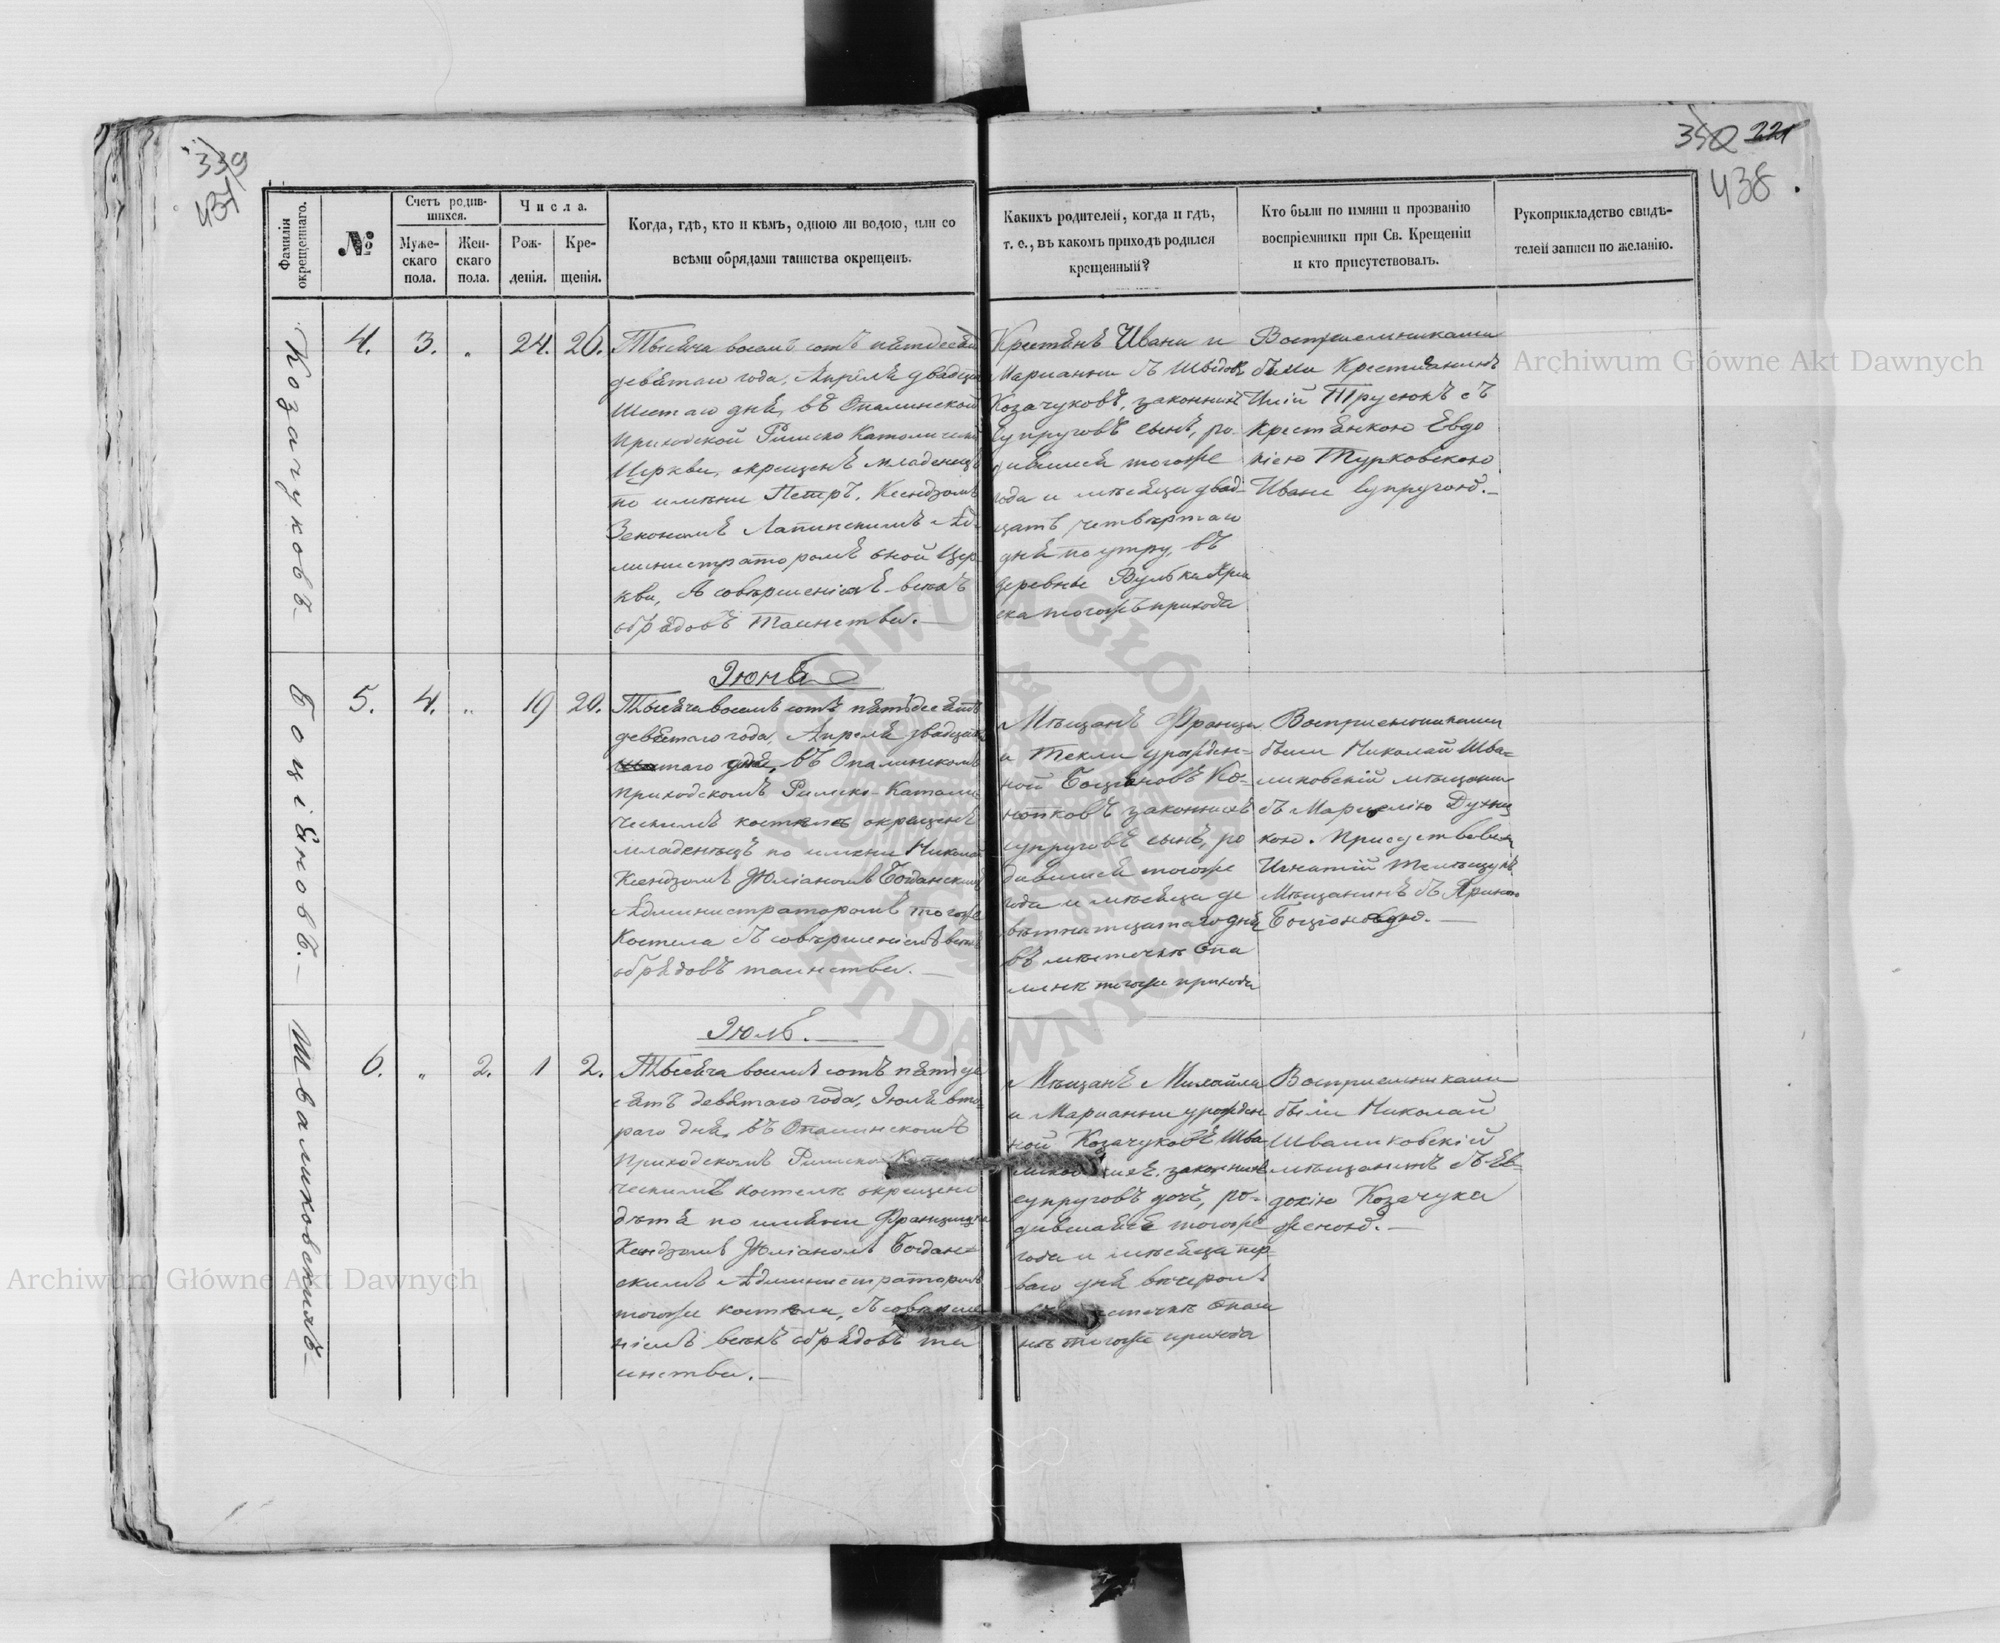 339
437
350 221
438
Фамилія окрещеннаго.
№
Счетъ родив-
шихся.
Муже-
скаго
пола.
Жен-
скаго
пола.
Числа.
Рож-
денія.
Кре-
щенія.
Когда, гдѣ, кто и кѣмъ, одною ли водою, или со
всѣми обрядами таинства окрещенъ.
Какихъ родителей, когда и гдѣ,
т. е., въ какомъ приходѣ родился
крещенный?
Кто были по имяни и прозванію
воспріемники при Св. Крещеніи
и кто присутствовалъ.
Рукоприкладство свидѣ-
телей записи по желанію.
Козачуковъ
4. 3. „ 24. 26.
Тысяча восемъ сотъ пятдесят
девятаго года, Апрѣля двадцат
шестаго дня, въ Опалинской
приходской Римско Католической
Церкви, окрещенъ младенецъ
по имени Петръ, Ксендзомъ
Лапинскимъ Ад-
министраторомъ оной Цер-
кви, съ совершеніемъ всехъ
обрядовъ Таинства.—
Крестянъ Ивана и
Марианны
Козачуковъ, законныхъ
супруговъ сынъ, ро-
дившися тогоже
года и мѣсяца двад-
цать четвертаго
дня по утру, въ
деревне Вулька
тогожъ прихода
Восприемниками
были Крестианинъ
Трусюкъ съ
Крестянкою Евдо
кіею Турковскою
Ивана супругою.—
Боціяновъ.—
Іюня
5. 4. „ 19 20.
Тысяча восемъ сотъ пятьдесятъ
девятаго года, Апреля двадцать
таго дня, въ Опалинскомъ
приходскомъ Римско-Католи
ческимъ костелѣ окрещенъ
младенецъ по имени Николай
Ксендзомъ Юліаномъ Богданскимъ
Администраторомъ тогоже
Костела съ совершеніемъ всехъ
обрядовъ таинства.—
Мѣщанъ Франца
и Текли урожден-
ной
законныхъ
супруговъ сынъ, ро
дившися тогоже
года и мѣсяца де
вятнатцатаго дня
въ мѣстечкѣ Опа
линѣ тогоже прихода
Восприемниками
были Николай Шва-
ликовскій мѣщанин
съ Марцелію
кою. Присутствовали
Игнатій
Мѣщанинъ съ
Боціоновою.—
Шваликовскихъ—
Іюль.
6. „ 2. 1 2.
Тысяча восемъ сотъ пятде
сятъ девятаго года, Іюля вто-
раго дня, въ Опалинскомъ
приходскомъ Римско-Като
ческимъ костелѣ окрещено
дѣтя по имени Францишка
Ксендзомъ Юліаномъ Богдан-
скимъ Администраторомъ
тогоже костела, съ соверше
ніемъ всехъ обрядовъ та
инства.—
Мѣщанъ Михайла
и Марианны урожден
ной Козачуковъ Шва-
законныхъ
супруговъ дочь, ро-
дившаяся тогоже
года и мѣсяца пер-
ваго дня вечеромъ
Опали
нѣ тогоже прихода
Восприемниками
были Николай
Шваликовскій
мѣщанинъ съ Ев-
докію Козачука
женою.—
Archiwum Główne Akt Dawnych
Archiwum Główne Akt Dawnych
ARCHIWUM GŁÓWNE AKT DAWNYCH